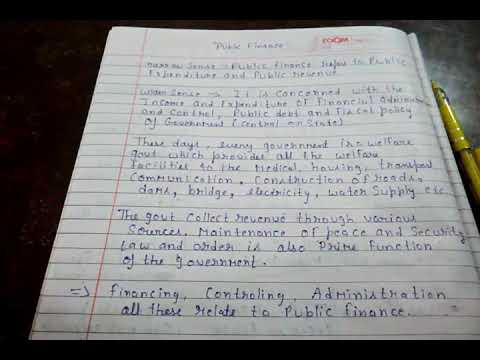 ROOM
Public Finance
Narrow Sense → Public finance refers to Public
Expenditure and Public revenue
Wider Sense → It is concerned with the
Income and Expenditure of Financial Administ
and Control, Public debt and Fiscal policy
of Government (Central or State)
These days, every government is a welfare
govt which provides all the welfare
facilities to the Medical, housing, transport
Communication, Construction of roads,
dams, bridge, electricity, water Supply etc
The govt Collect revenue through various
Sources. Maintenance of peace and Security
Law and order is also Prime function
of the Government.
⇒ Financing, Controling, Administration
all these relate to Public finance.